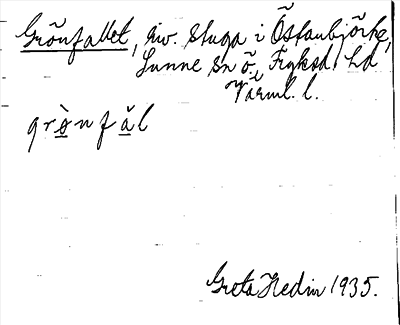 Grönfallet, äv. stuga i Östanbjörke,
Sunne sn ö. Fryksd. hd
Värml. l.
grø̀nfăl
Greta Hedin 1935.